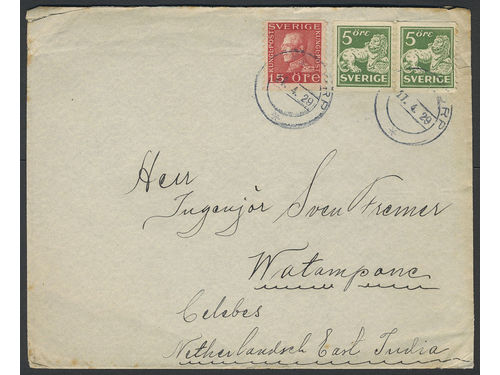 SVERIGE
KUNGLPOST KUNGLPOST
15 ÖRE
5 öre
SVERIGE
5 öre
SVERIGE
4.29
RP
17.4.29
RP
Herr
Ingenjör Sven Fremer
Watampone
Celebes
Netherlandsch East India